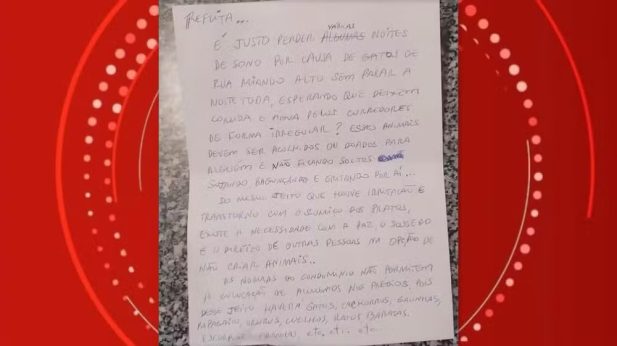 REFLITA...
É JUSTO PERDER VÁRIAS NOITES
DE SONO POR CAUSA DE GATOS DE
RUA MIANDO ALTO SEM PARAR A
NOITE TODA, ESPERANDO QUE DEIXEM
COMIDA E ÁGUA PELOS CORREDORES
DE FORMA IRREGULAR? ESSES ANIMAIS
DEVEM SER ACOLHIDOS OU DOADOS PARA
ALGUÉM E NÃO FICANDO SOLTOS
SUJANDO BAGUNÇANDO E GRITANDO POR AÍ...
DO MESMO JEITO QUE HOUVE IRRITAÇÃO E
TRANSTORNO COM O SUMIÇO DOS PRATOS,
EXISTE A NECESSIDADE COM A PAZ O SOSSEGO
E O DIREITO DE OUTRAS PESSOAS NA OPÇÃO DE
NÃO CRIAR ANIMAIS..
AS NORMAS DO CONDOMÍNIO NÃO PERMITEM
A COLOCAÇÃO DE ALIMENTOS NOS PRÉDIOS, POIS
DESSE JEITO HAVERÁ GATOS, CACHORROS, GALINHAS,
PAPAGAIO, COELHOS, RATOS BARATAS,
etc, etc.. etc..